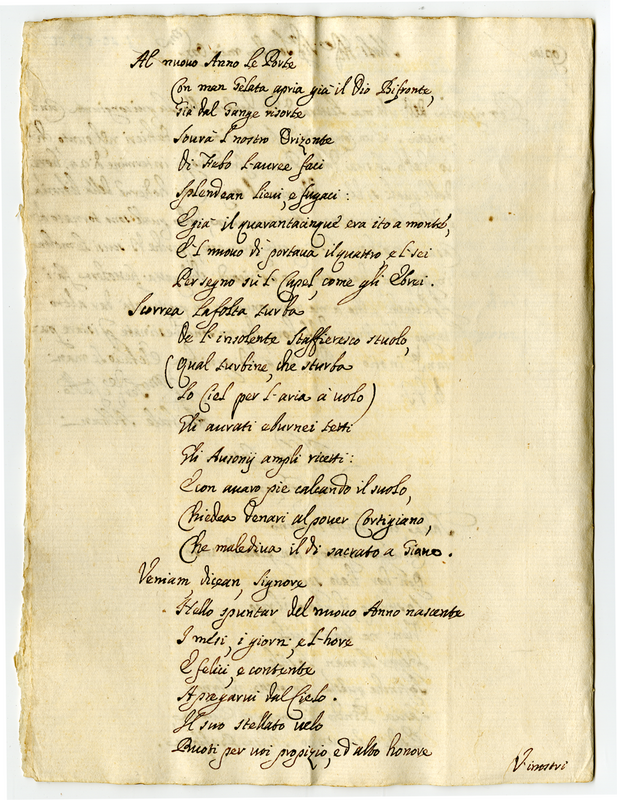 Al nuovo Anno le Porte
Con man Gelata apria già il Dio Bifronte,
Già dal Gange risorte
Sovra l'nostro Orizonte
Di Febo l'auree faci
Splendean lievi, e fugaci:
E già il quarantacinque era ito a monte,
E l nuovo dì portava il quattro, e l sei
Per segno sù l Capel, come gli Ebrei.
Scorrea la folta turba
De l'insolente Staffieresco stuolo,
(Qual turbine, che sturba
Lo Ciel per l'aria à volo)
Gli aurati eburnei tetti
Gli Ausonij ampli ricetti:
E con avaro piè calcando il suolo,
Chiedea denari al pover Cortigiano,
Che malediva il dì sacrato a Giano.
Veniam, dicean, Signore
Nello spuntar del nuovo Anno nascente
I mesi, i giorni, e l'hore
E felici, e contente
A pregarvi dal Cielo.
Il suo stellato velo
Ruoti per voi propizio, e d'alto honore